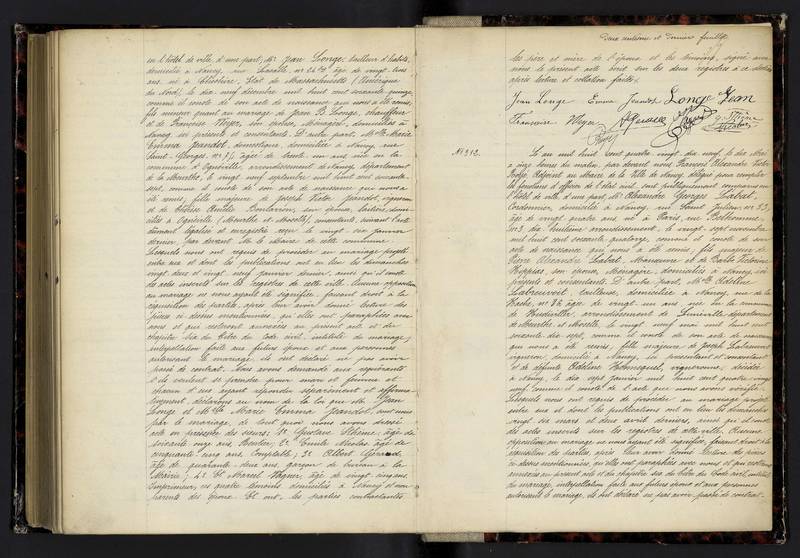 en l'hôtel de ville, d'une part, Mr Jean Longe, tailleur d'habits,
domicilié à Nancy, rue No 24 bis âgé de vingt trois
ans, né à État de Massachusetts (Amérique
du Nord), le dix neuf décembre mil huit cent soixante quinze,
comme il conste de son acte de naissance qui nous a été remis,
fils mineur quant au mariage de Jean B. Longe, chauffeur
et de Françoise Weyer, son épouse, Ménagère, domiciliés à
Nancy, ici présents et consentants. D'autre part, Melle Marie
Emma Jeandot, domestique, domiciliée à Nancy, rue
Saint Georges, No âgée de trente ans née en la
commune d'Ogéviller, arrondissement de département
de la Meurthe, le vingt neuf septembre mil huit cent soixante
sept, comme il conste de son acte de naissance qui nous a
été remis, fille majeure de Joseph Victor Jeandot, vigneron
et de son épouse,
à Ogéviller (Meurthe et Moselle) consentants, suivant l'acte
dûment légalisé et enregistré reçu le vingt six janvier
dernier, par devant M. le Maire de cette commune.
Lesquels nous ont requis de procéder au mariage projeté
entre eux et dont les publications ont eu lieu les dimanches
vingt deux et vingt neuf janvier dernier, ainsi qu'il conste
des actes inscrits sur les registres de cette ville. Aucune opposition
au mariage ne nous ayant été signifiée, faisant droit à la
réquisition des parties, après leur avoir donné lecture des
pièces ci dessus mentionnées, qu'elles ont paraphées avec
nous et qui resteront annexées au présent acte et du
chapitre six du titre du Code civil, intitulé du mariage,
interpellation faite aux futurs époux et aux personnes
autorisant le mariage, ils ont déclaré ne pas avoir
passé de contrat. Nous avons demandé aux requérants
s'ils veulent se prendre pour mari et femme et
chacun d'eux ayant répondu séparément et affirma-
tivement, déclarons au nom de la loi que Mr Jean
Longe et Melle Marie Emma Jeandot, sont unis
par le mariage, de tout quoi nous avons dressé
acte en présence des sieurs: 1o Gustave Thième, âgé de
soixante onze ans, Rentier; 2o Emile Nicolas, âgé de
cinquante cinq ans, Comptable; 3o Albert Gérard,
âgé de quarante deux ans, garçon de bureau à la
Mairie; 4o Et Marcel Wagner, âgé de vingt cinq ans
Imprimeur, ces quatre témoins domiciliés à Nancy et non
parents des époux. Et ont, les parties contractantes
deux centième et dernier feuillet
les père et mère de l'époux et les témoins, signé avec
nous le présent acte écrit sur les deux registres à ce destinés
après lecture et collation faites.
Jean Longe Emma Jeandot Longe Jean
Françoise Weyer G. Thième
No 312.
L'an mil huit cent quatre vingt dix neuf, le dix Mai
à onze heures du matin, par devant nous François Alexandre Victor
Adjoint au Maire de la Ville de Nancy, délégué pour remplir
les fonctions d'officier de l'état civil, sont publiquement comparus en
l'hôtel de ville, d'une part, Mr Alexandre Georges Labat,
cordonnier, domicilié à Nancy, rue Saint Julien, No 23,
âgé de vingt quatre ans, né à Paris, rue
No 3 dix huitième arrondissement, le vingt sept novembre
mil huit cent soixante quatorze, comme il conste de son
acte de naissance qui nous a été remis, fils majeur de
Pierre Alexandre Labat, Manœuvre et de
son épouse, Ménagère, domiciliés à Nancy, ici
présents et consentants. D'autre part, Melle Adeline
tailleuse, domiciliée à Nancy, rue de la
Hache, No 82 âgée de vingt un ans, née en la commune
de arrondissement de Lunéville, département
de Meurthe et Moselle, le vingt neuf mai mil huit cent
soixante dix sept, comme il conste de son acte de naissance
qui nous a été remis, fille majeure de Joseph
vigneron, domicilié à Nancy, ici présent et consentant
et de défunte Adeline vigneronne, décédée
à Nancy, le dix sept janvier mil huit cent quatre vingt
neuf, comme il conste de l'acte que nous avons vérifié.
Lesquels nous ont requis de procéder au mariage projeté
entre eux et dont les publications ont eu lieu les dimanches
vingt six mars et deux avril derniers, ainsi qu'il conste
des actes inscrits sur les registres de cette ville. Aucune
opposition au mariage ne nous ayant été signifiée, faisant droit à la
réquisition des parties, après leur avoir donné lecture des pièces
ci dessus mentionnées, qu'elles ont paraphées avec nous et qui resteront
annexées au présent acte et du chapitre six du titre du Code civil, intitulé
du mariage, interpellation faite aux futurs époux et aux personnes
autorisant le mariage, ils ont déclaré ne pas avoir passé de contrat.